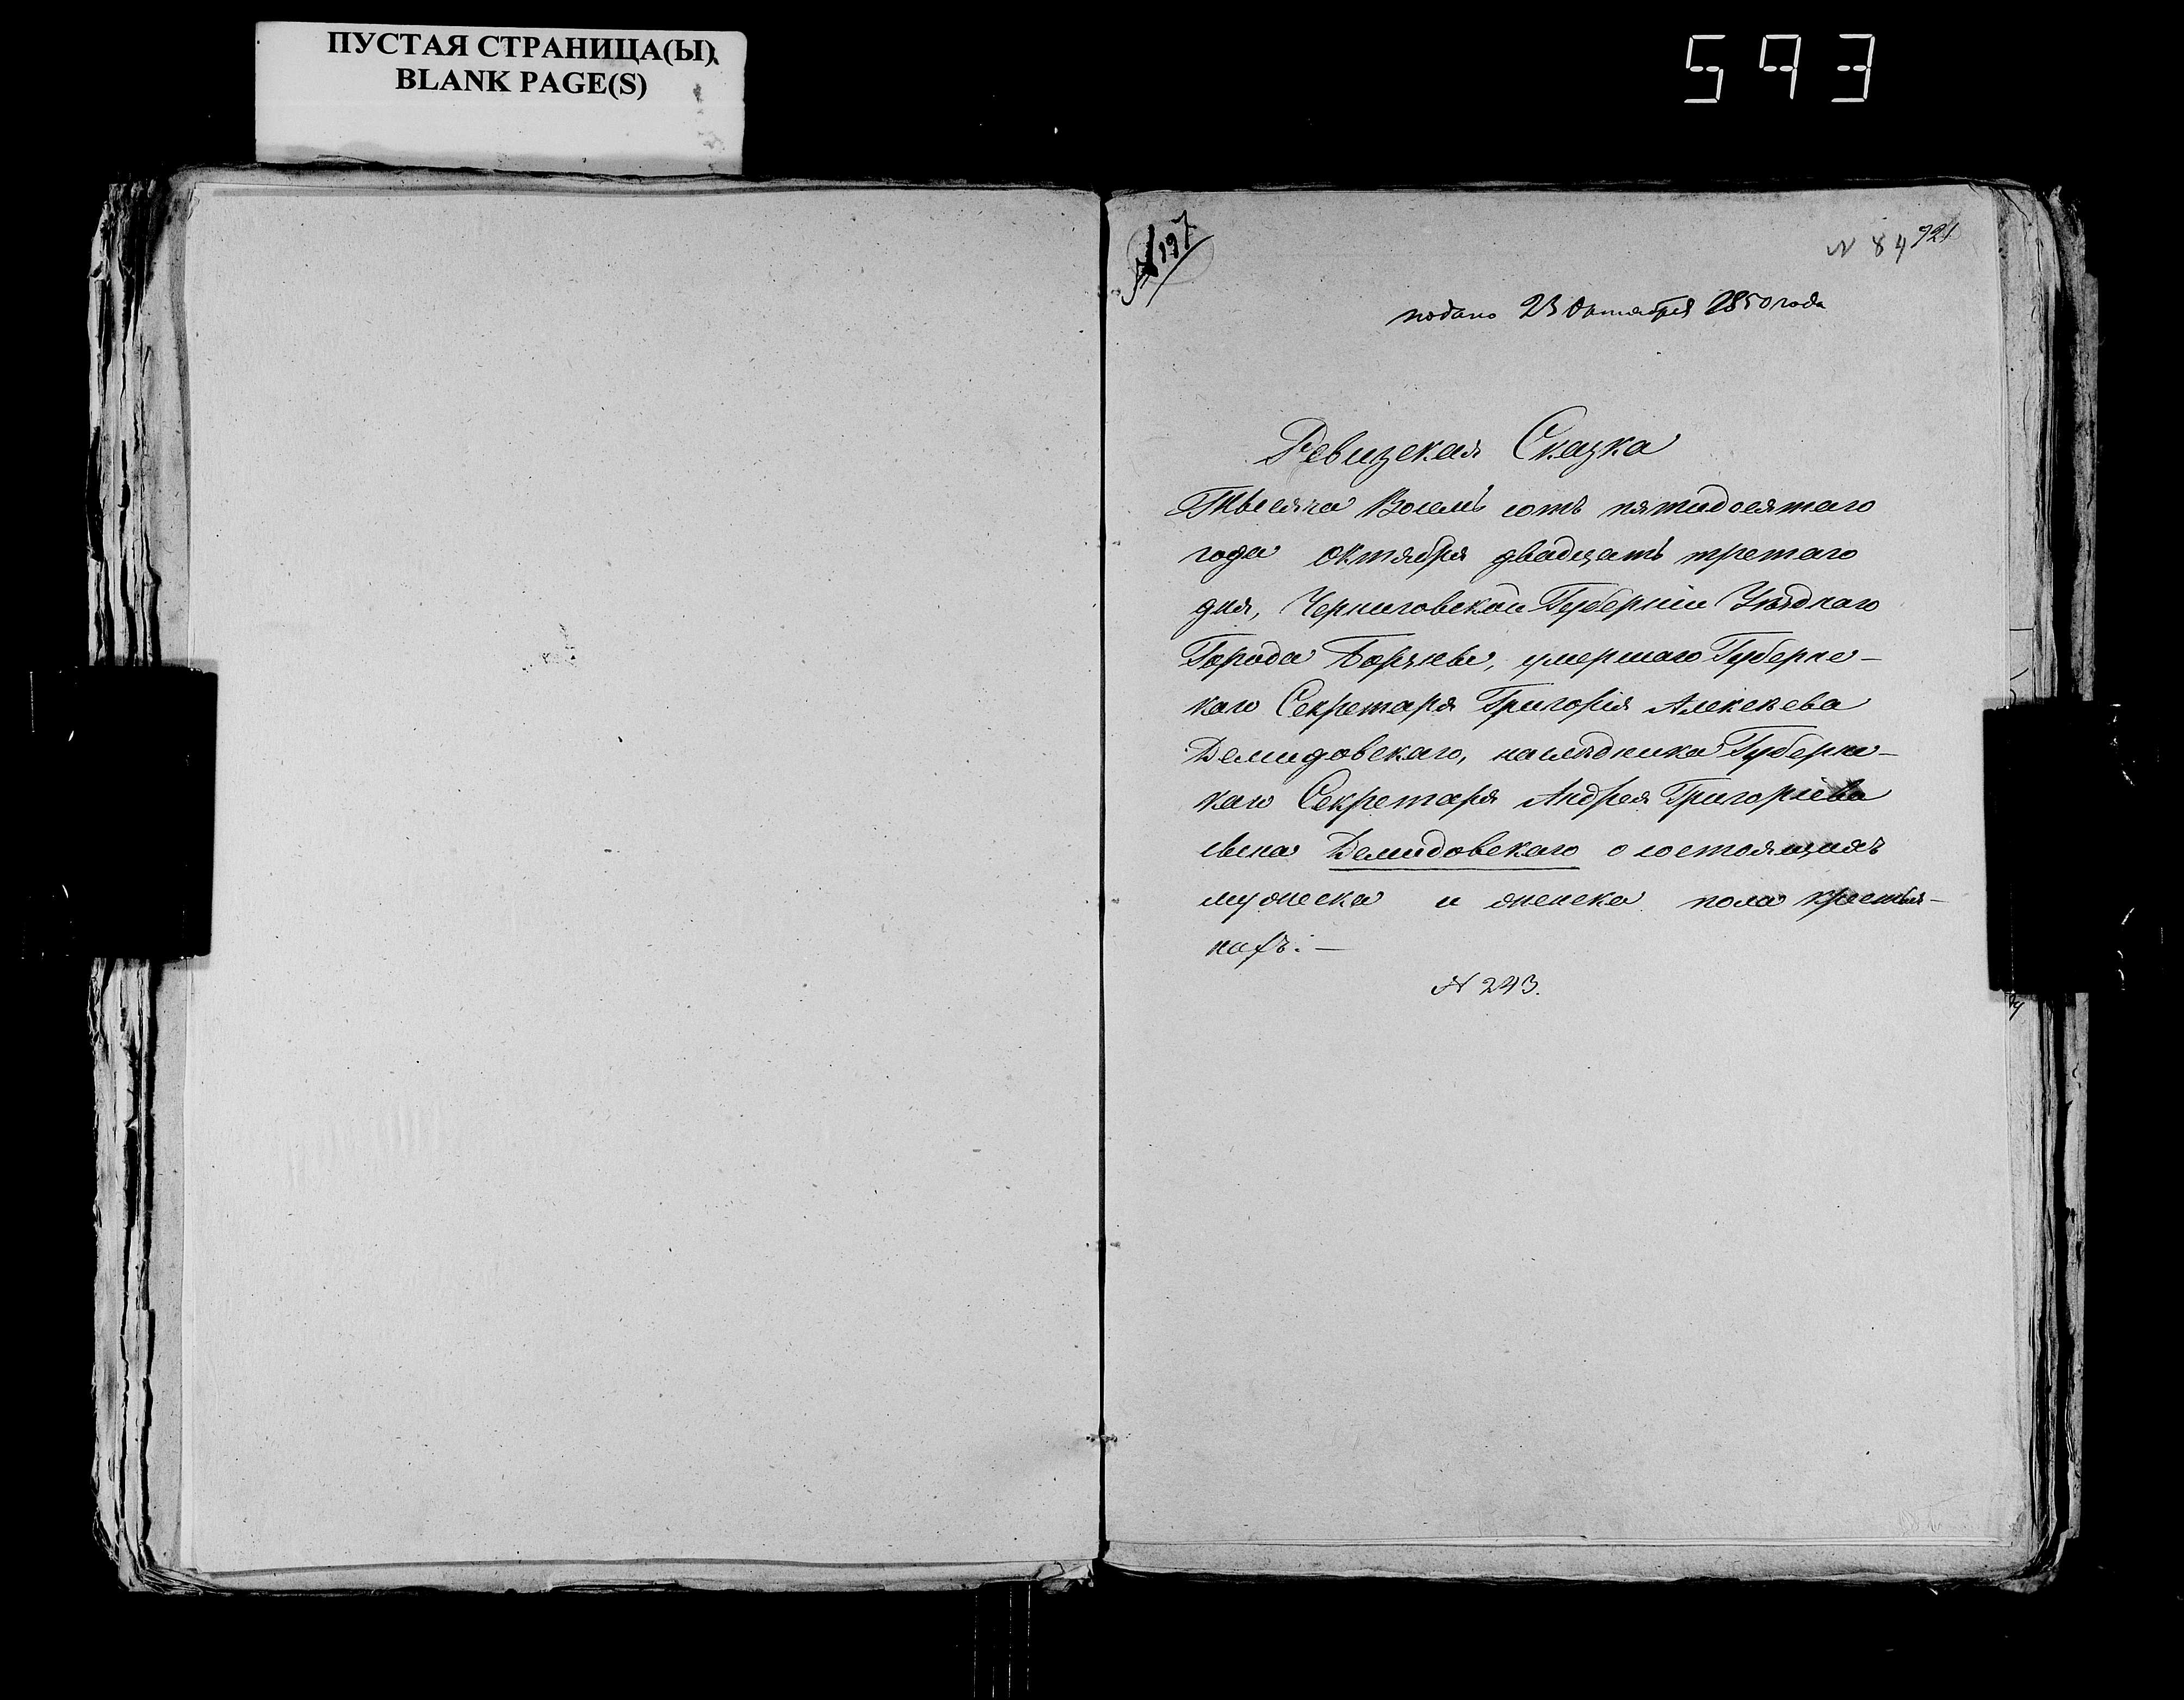 ПУСТАЯ СТРАНИЦА(Ы)
BLANK PAGE(S)
593
№ 197
№ 84 921
подано 23 Октября 1850 года
Ревизская Сказка
Тысяча Восемь сотъ пятидесятаго
года октября двадцать третаго
дня, Черниговской Губерніи Уѣзднаго
Города Борзны, умершаго Губернс-
каго Секретаря Григорія Алексѣева
Демидовскаго, наслѣдника Губернс-
каго Секретаря Андрея Григорьева
сына Демидовскаго о состоящихъ
мужеска и женска пола крестья-
нахъ:—
№ 243.